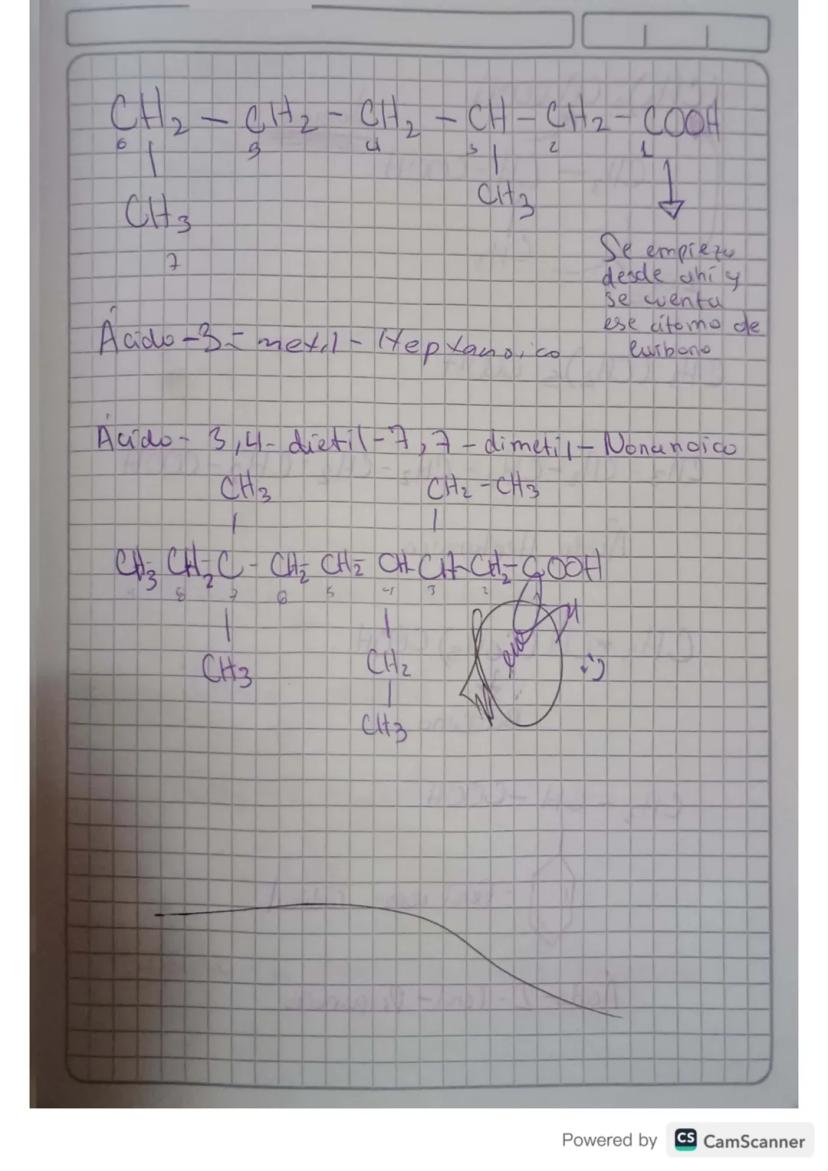 CH2 - CH2 - CH2 - CH - CH2 - COOH
6 5 4 3 2 1
CH3 CH3
7
Se empieza
desde ahí y
se cuenta
ese átomo de
Carbono
Ácido - 3 - metil - Heptanoico
Ácido - 3,4 - dietil - 7,7 - dimetil - Nonanoico
CH3 CH2 - CH3
CH3 - CH2 - C - CH2 - CH2 - CH - CH - CH2 - COOH
8 7 6 5 4 3 2 1
CH3 CH2
CH3
:)
Powered by CS CamScanner